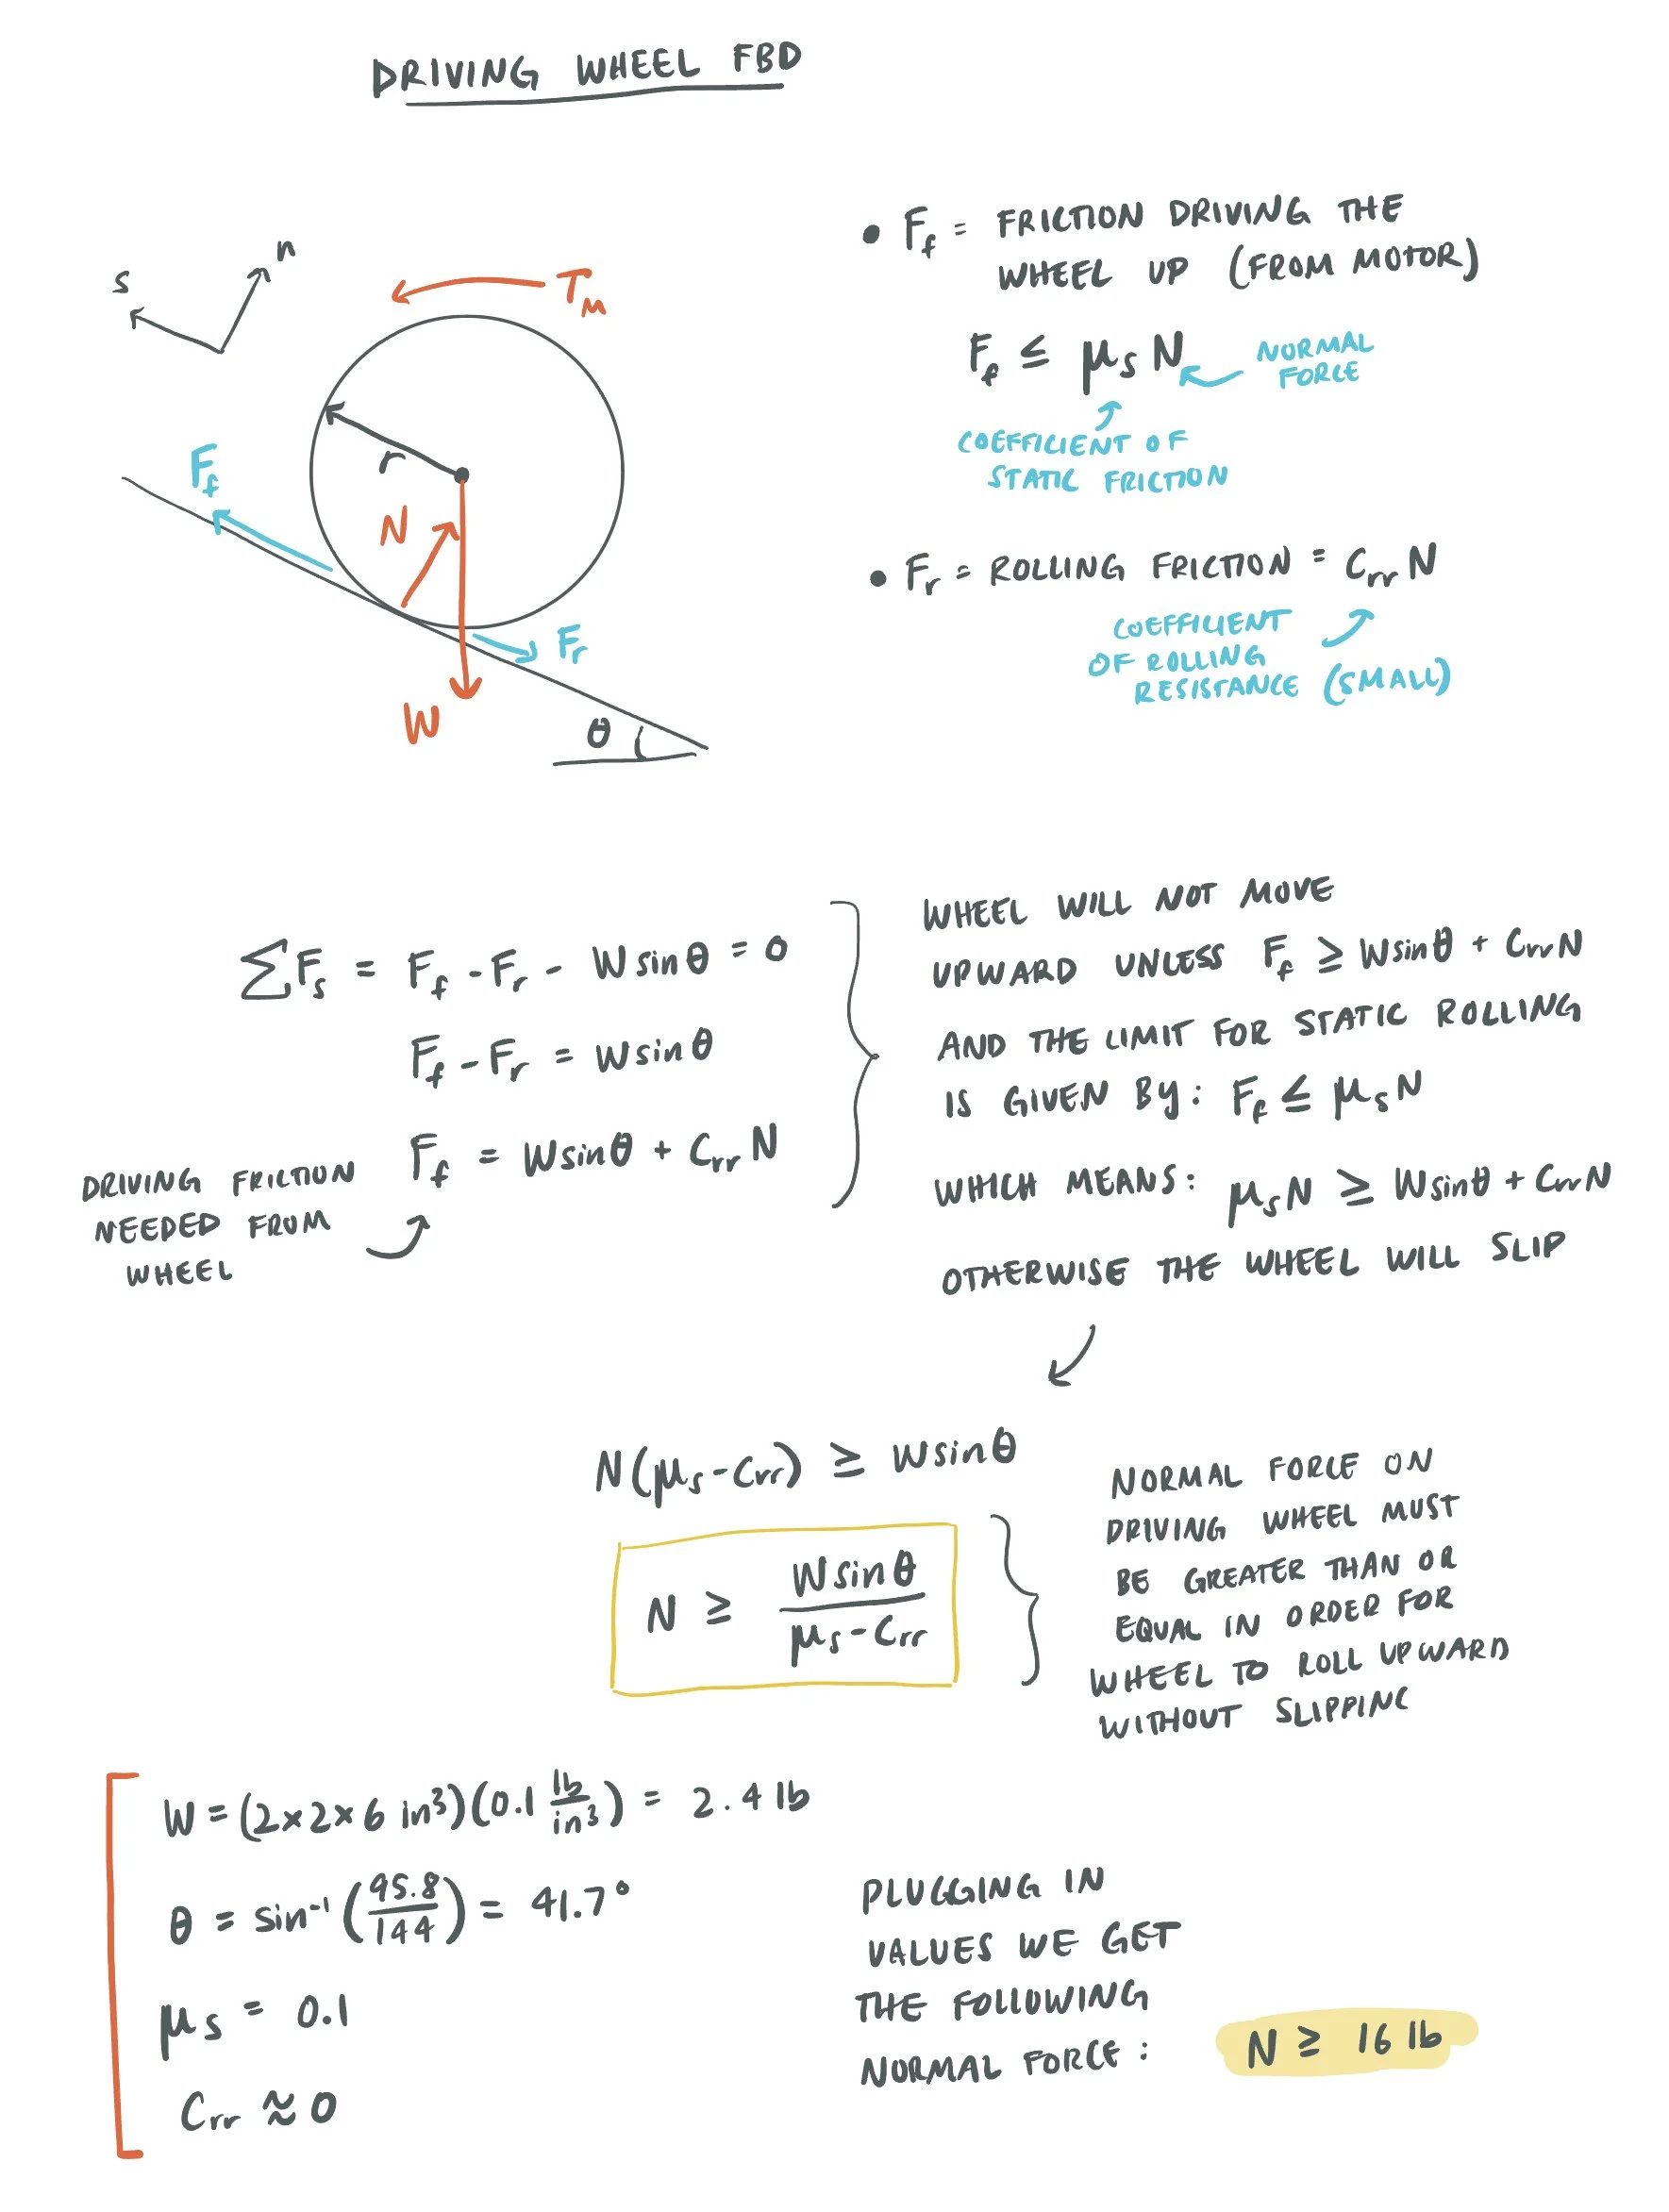 DRIVING WHEEL FBD
s
n
T_M
r
F_f
N
F_r
W
θ
• F_f = FRICTION DRIVING THE
WHEEL UP (FROM MOTOR)
F_f ≤ μ_s N
NORMAL
FORCE
COEFFICIENT OF
STATIC FRICTION
• F_r = ROLLING FRICTION = C_rr N
COEFFICIENT
OF ROLLING
RESISTANCE (SMALL)
ΣF_s = F_f - F_r - W sin θ = 0
F_f - F_r = W sin θ
F_f = W sin θ + C_rr N
DRIVING FRICTION
NEEDED FROM
WHEEL
WHEEL WILL NOT MOVE
UPWARD UNLESS F_f ≥ W sin θ + C_rr N
AND THE LIMIT FOR STATIC ROLLING
IS GIVEN BY: F_f ≤ μ_s N
WHICH MEANS: μ_s N ≥ W sin θ + C_rr N
OTHERWISE THE WHEEL WILL SLIP
N(μ_s - C_rr) ≥ W sin θ
N ≥ W sin θ / μ_s - C_rr
NORMAL FORCE ON
DRIVING WHEEL MUST
BE GREATER THAN OR
EQUAL IN ORDER FOR
WHEEL TO ROLL UPWARD
WITHOUT SLIPPING
W = (2×2×6 in³)(0.1 lb/in³) = 2.4 lb
θ = sin⁻¹(95.8/144) = 41.7°
μ_s = 0.1
C_rr ≈ 0
PLUGGING IN
VALUES WE GET
THE FOLLOWING
NORMAL FORCE:
N ≥ 16 lb